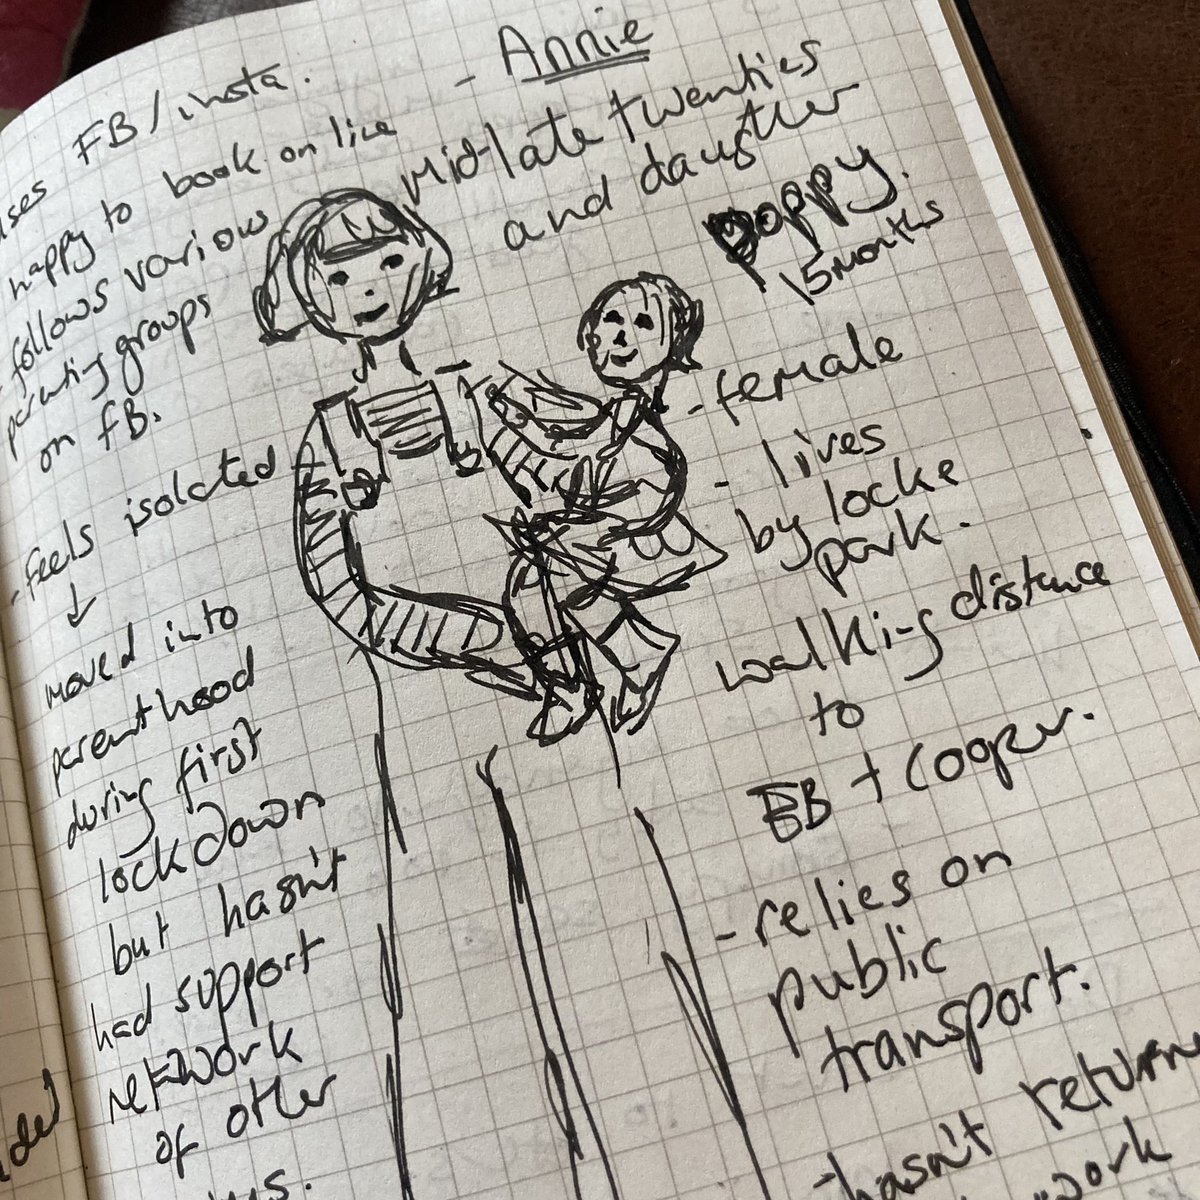 - Annie
Mid-late twenties
and daughter
Poppy.
15 months
- female
- lives
by locke
park.
walking distance
to
EB + Cooper.
- relies on
public
transport.
- hasn't
work
uses FB/insta.
happy to book on line
- follows various
parenting groups
on FB.
- feels isolated
↓
moved into
parenthood
during first
lockdown
but hasn't
had support
network
of other